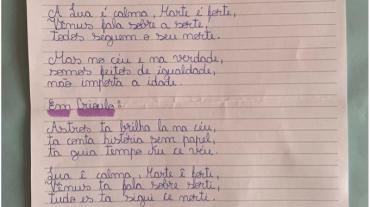 A Lua é calma, Marte é forte,
Vénus fala sobre a sorte,
Todos seguem o seu norte.
Mas no céu e na verdade,
somos feitos de igualdade,
não importa a idade.
Em Crioulo:
Astros ta brilha la na céu,
ta conta história sem papel,
ta guia tempo ku ce véu.
Lua é calma, Marte é forte,
Vénus ta fala sobre sorte,
Tudo es ta sigui ce norte.